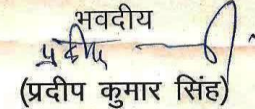 भवदीय
प्रदीप
(प्रदीप कुमार सिंह)